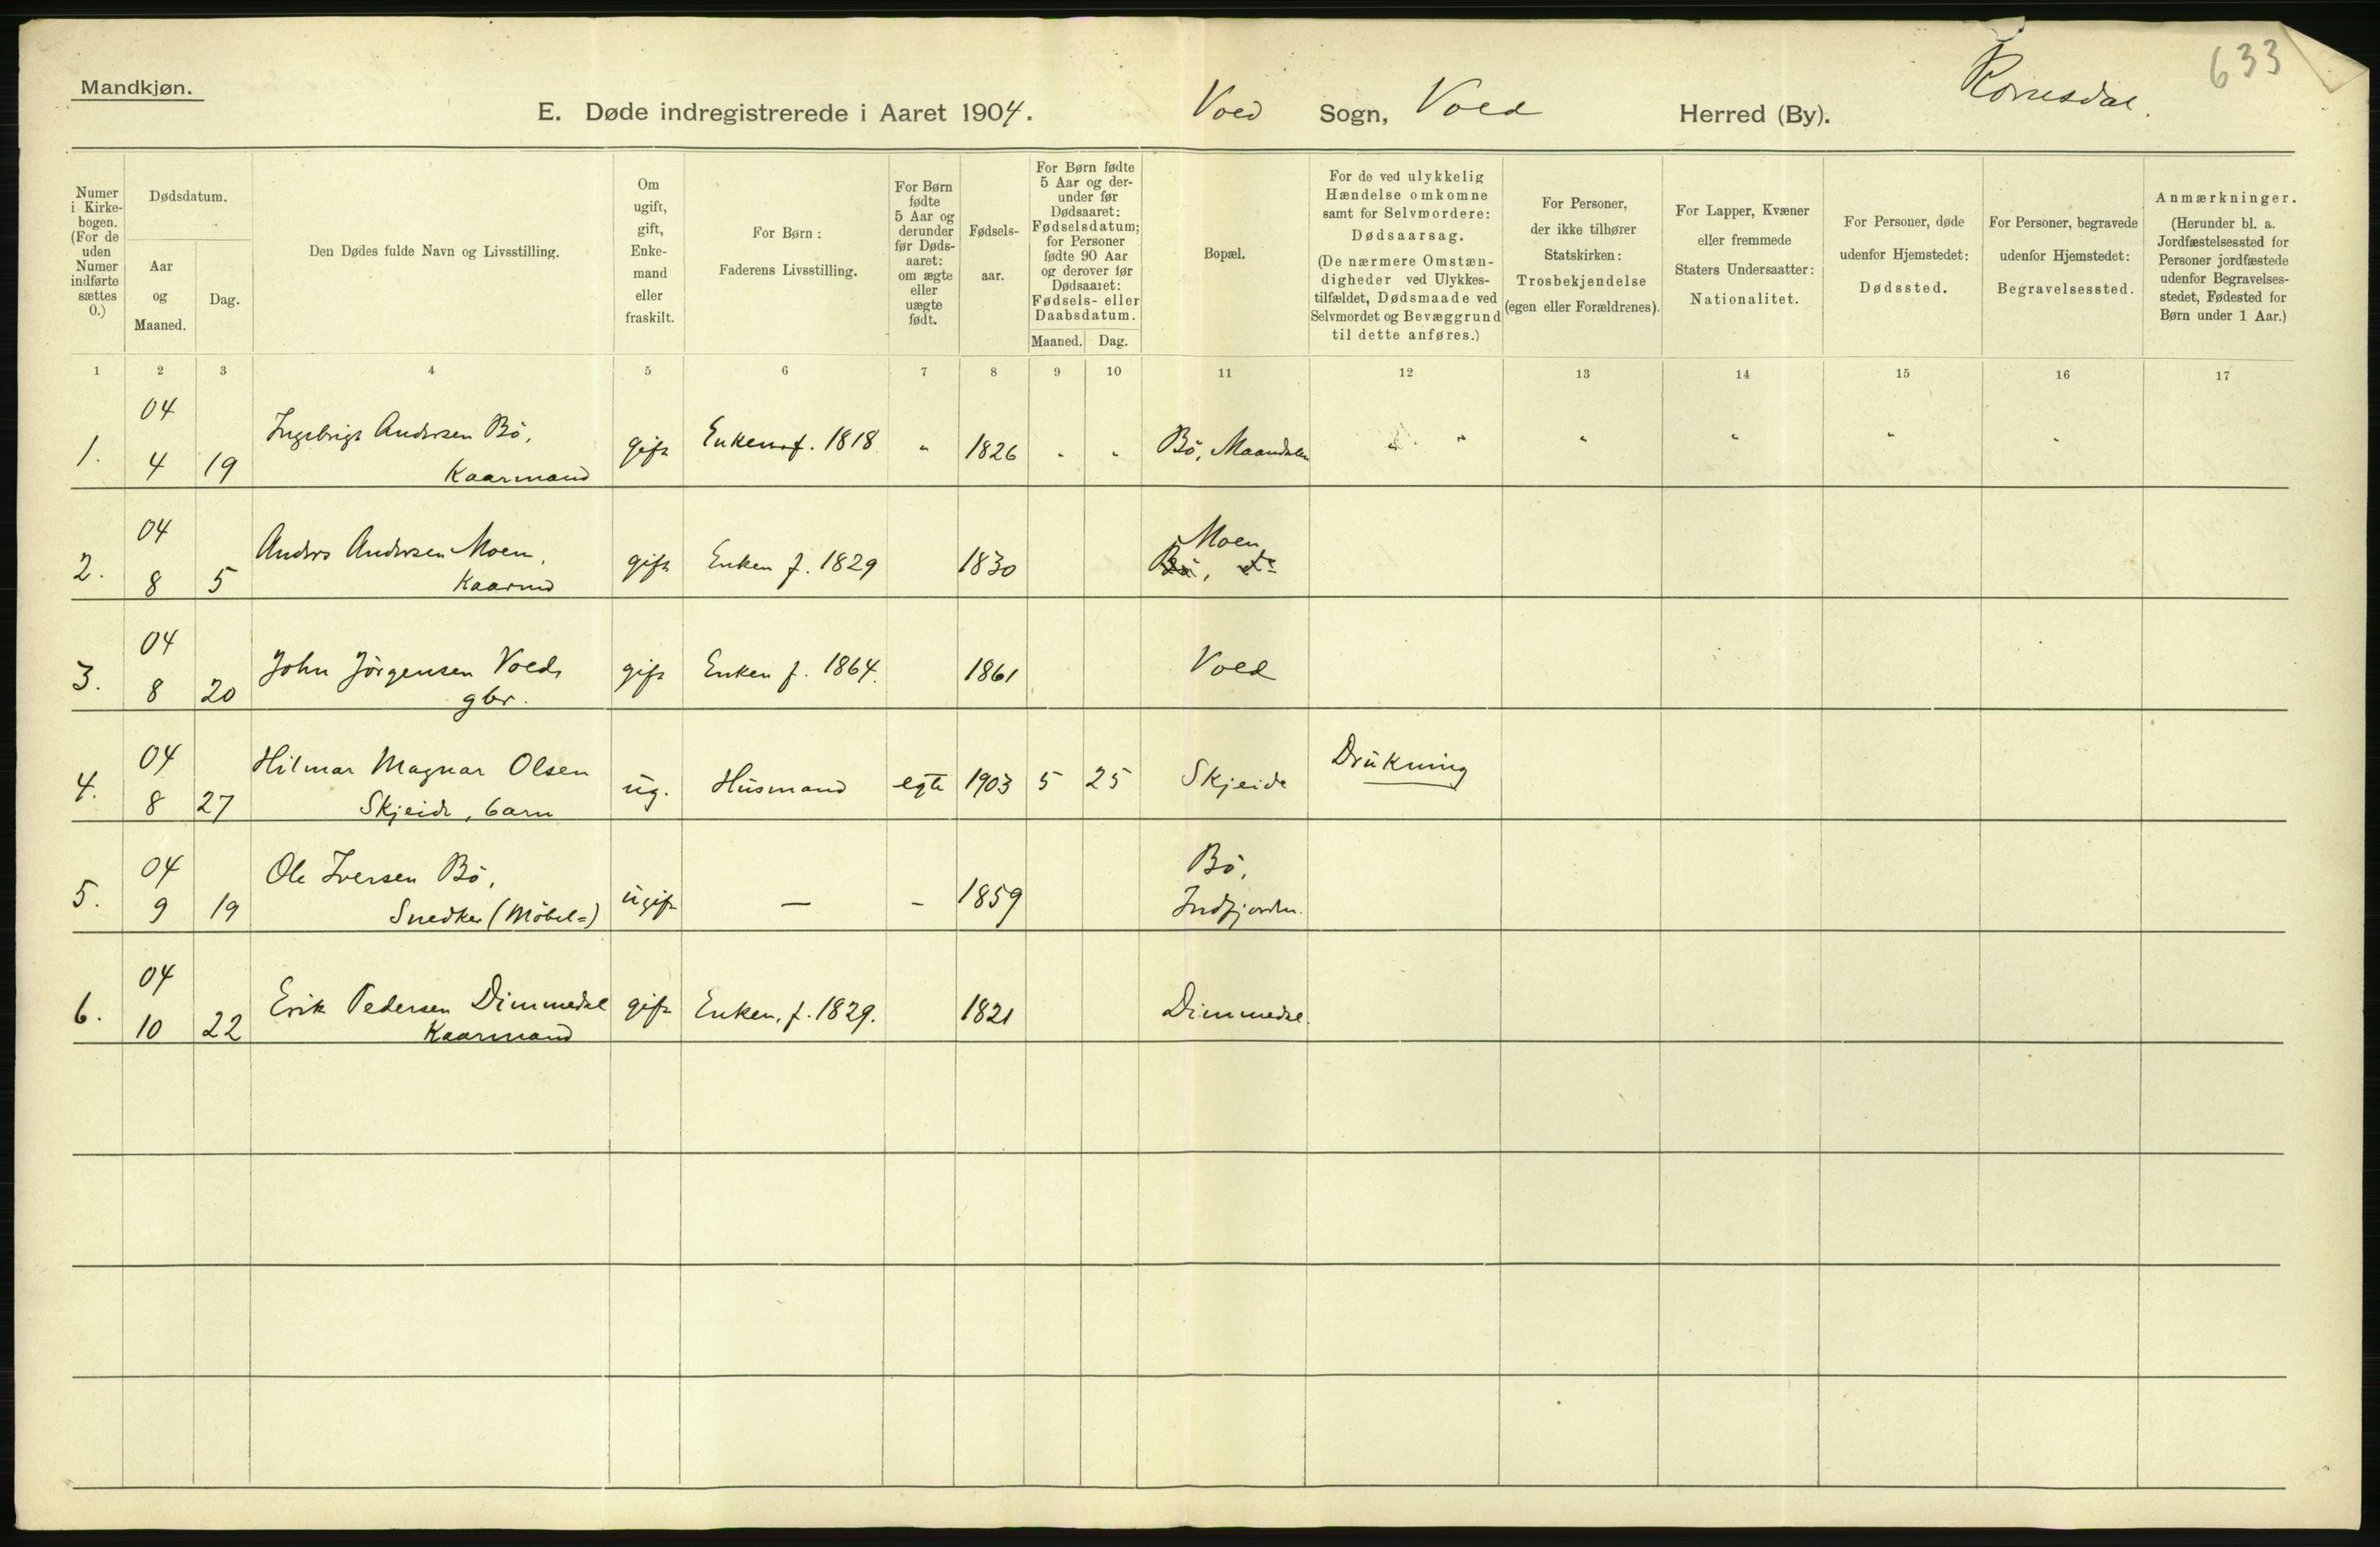 Mandkjøn.
633
E. Døde indregistrerede i Aaret 1904. Vold Sogn, Vold Herred (By). Romsdal.
Numer i Kirkebogen. (For de uden Numer indførte sættes 0.)
Dødsdatum.
Aar og Maaned.
Dag.
Den Dødes fulde Navn og Livsstilling.
Om ugift, gift, Enkemand eller fraskilt.
For Børn: Faderens Livsstilling.
For Børn fødte 5 Aar og derunder før Dødsaaret: om ægte eller uægte født.
Fødselsaar.
For Børn fødte 5 Aar og derunder før Dødsaaret: Fødselsdatum; for Personer fødte 90 Aar og derover før Dødsaaret: Fødsels- eller Daabsdatum.
Maaned. Dag.
Bopæl.
For de ved ulykkelig Hændelse omkomne samt for Selvmordere: Dødsaarsag. (De nærmere Omstændigheder ved Ulykkestilfældet, Dødsmaade ved Selvmordet og Bevæggrund til dette anføres.)
For Personer, der ikke tilhører Statskirken: Trosbekjendelse (egen eller Forældrenes).
For Lapper, Kvæner eller fremmede Staters Undersaatter: Nationalitet.
For Personer, døde udenfor Hjemstedet: Dødssted.
For Personer, begravede udenfor Hjemstedet: Begravelsessted.
Anmærkninger. (Herunder bl. a. Jordfæstelsessted for Personer jordfæstede udenfor Begravelsesstedet, Fødested for Børn under 1 Aar.)
1 2 3 4 5 6 7 8 9 10 11 12 13 14 15 16 17
1. 04 4 19 Ingebrigt Andersen Bö, Kaarmand gift Enken f. 1818 " 1826 " " Bö, Maandalen " " " " " "
2. 04 8 5 Anders Andersen Moen, Kaarmd gift Enken f. 1829 1830 Moen Bö, do
3. 04 8 20 John Jörgensen Vold, gbr. gift Enken f. 1864. 1861 Vold
4. 04 8 27 Hilmar Magnar Olsen Skjeide, barn ug. Husmand egte 1903 5 25 Skjeide Drukning
5. 04 9 19 Ole Iversen Bö, Snedker (Möbel=) ugift — – 1859 Bö, Indfjorden.
6. 04 10 22 Erik Pedersen Dimmedal Kaarmand gift Enken, f. 1829. 1821 Dimmedal.